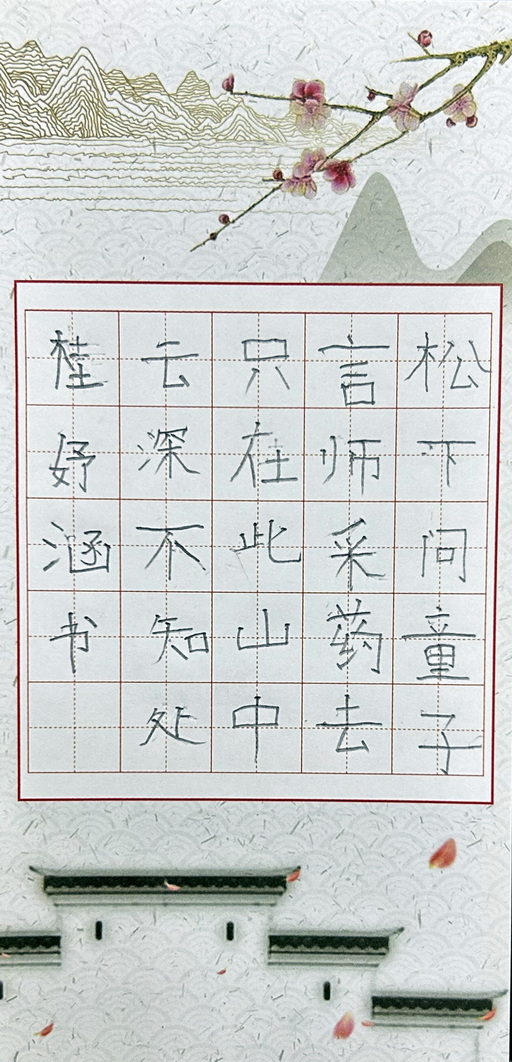 松下问童子
言师采药去
只在此山中
云深不知处
桂妤涵书